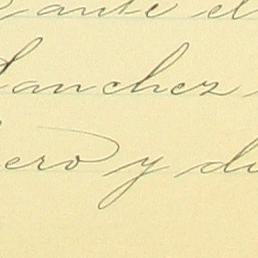 ante el
Sanchez
ero y di